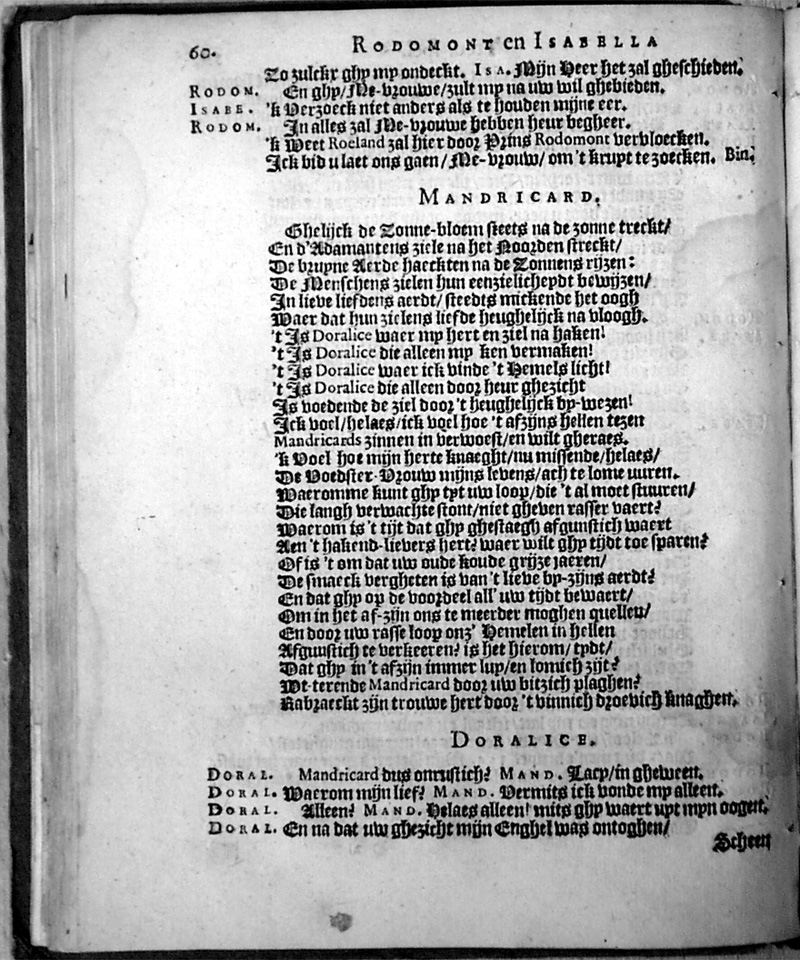 60. RODOMONT en ISABELLA
Zo zulckx ghy my ondeckt. ISA. Mijn Heer het zal gheschieden.
RODOM. En ghy/ Me-vrouwe/ zult my na uw wil ghebieden.
ISABE. 'k Verzoeck niet anders als te houden mijne eer.
RODOM. In alles zal Me-vrouwe hebben heur begheer.
'k Weet Roeland zal hier door Prins Rodomont vervloecken.
Ick bid u laet ons gaen/ Me-vrouw/ om 't kruyt te zoecken. Bin.
MANDRICARD.
Ghelijck de Zonne-bloem steets na de zonne treckt/
En d'Adamantens ziele na het Noorden streckt/
De bruyne Aerde haeckten na de Zonnens rijzen:
De Menschens zielen hun eenzielicheydt bewijzen/
In lieve liefdens aerdt/ steedts mickende het oogh
Waer dat hun zielens liefde heughelijck na vloogh.
't Is Doralice waer my hert en ziel na haken!
't Is Doralice die alleen my ken vermaken!
't Is Doralice waer ick vinde 't Hemels licht!
't Is Doralice die alleen door heur ghezicht
Is voedende de ziel door 't heughelijck by-wezen!
Ick voel/ helaes/ ick voel hoe 't afzijns hellen tezen
Mandricards zinnen in verwoest/ en wilt gheraes.
'k Voel hoe mijn herte knaeght/ nu missende/ helaes/
De Voedster-Vrouw mijns levens/ ach te lome uuren.
Waeromme kunt ghy tyt uw loop/ die 't al moet stuuren/
Die langh verwachte stont/ niet gheven rasser vaert?
Waerom is 't tijt dat ghy ghestaegh afgunstich waert
Aen 't hakend-lievers hert? waer wilt ghy tijdt toe sparen?
Of is 't om dat uw oude koude grijze jaeren/
De smaeck vergheten is van 't lieve by-zijns aerdt?
En dat ghy op de voordeel all' uw tijdt bewaert/
Om in het af-zijn ons te meerder moghen quellen/
En door uw rasse loop onz' Hemelen in hellen
Afgunstich te verkeeren? is het hierom/ tydt/
Dat ghy in 't afzijn immer luy/ en lomich zijt?
Wt-terende Mandricard door uw bitzich plaghen?
Rabraeckt zijn trouwe hert door 't vinnich droevich knaghen.
DORALICE.
DORAL. Mandricard dus onrustich? MAND. Lacy/ in gheween.
DORAL. Waerom mijn lief? MAND. Vermits ick vonde my alleen.
DORAL. Alleen? MAND. Helaes alleen! mits ghy waert uyt myn oogen.
DORAL. En na dat uw ghezicht mijn Enghel was ontoghen/
Scheen